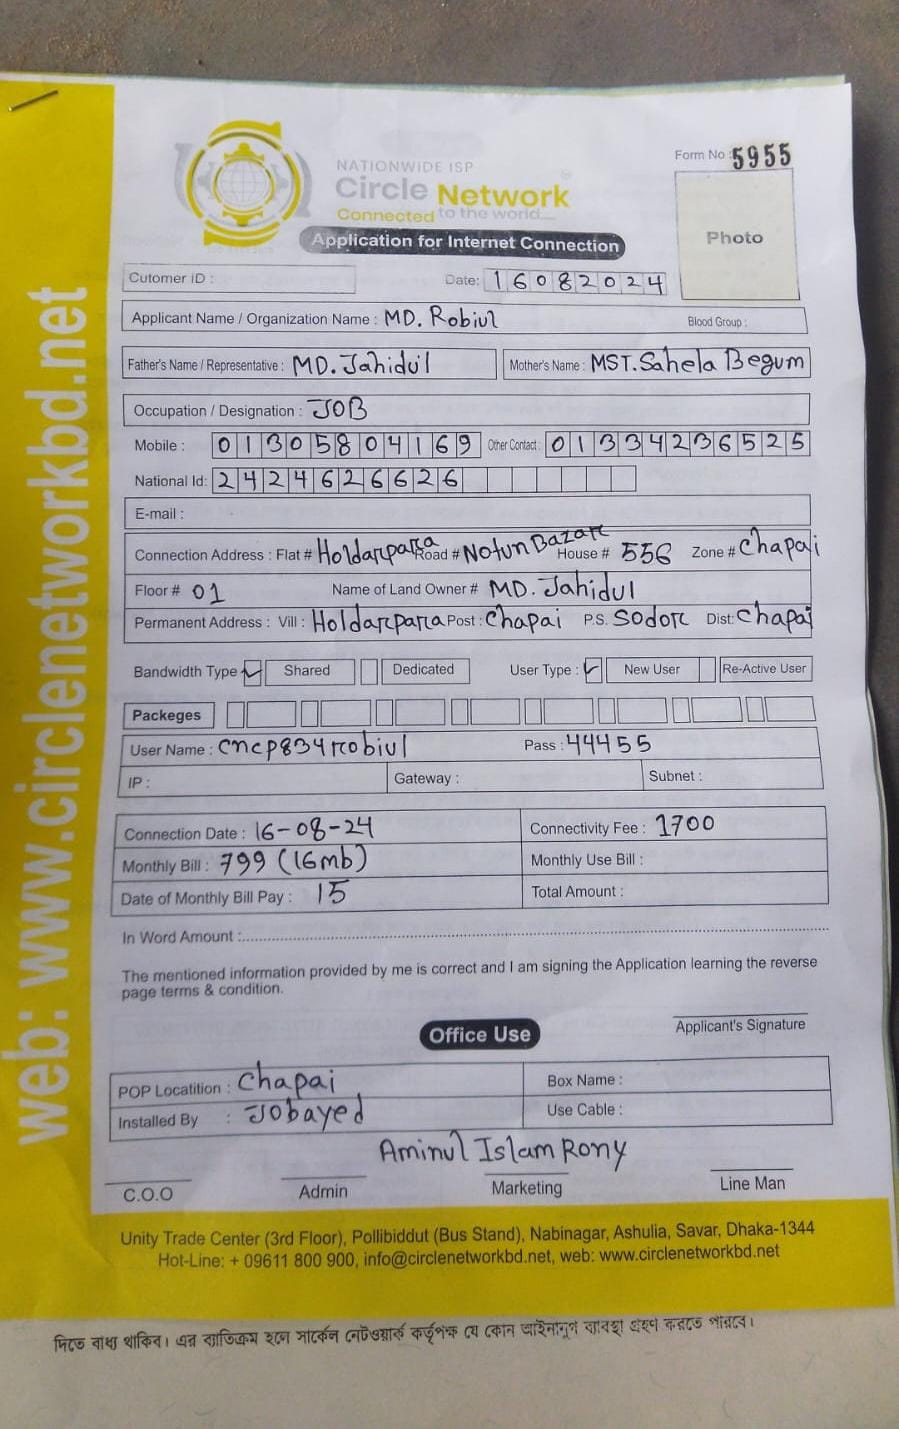 web: www.circlenetworkbd.net
NATIONWIDE ISP
Circle Network
Connected to the world....
Application for Internet Connection
Form No : 5955
Photo
Cutomer ID :
Date: 16082024
Applicant Name / Organization Name : MD. Robiul Blood Group :
Father's Name / Representative : MD. Jahidul Mother's Name : MST. Sahela Begum
Occupation / Designation : JOB
Mobile : 01305804169 Other Contact : 01334236525
National Id: 2424626626
E-mail :
Connection Address : Flat # Holdarpara Road # Notun Bazar House # 556 Zone # Chapai
Floor # 01 Name of Land Owner # MD. Jahidul
Permanent Address : Vill : Holdarpara Post : Chapai P.S. Sodor Dist: Chapai
Bandwidth Type ✓ Shared Dedicated User Type : ✓ New User Re-Active User
Packeges
User Name : cncp834robiul Pass : 44455
IP : Gateway : Subnet :
Connection Date : 16-08-24 Connectivity Fee : 1700
Monthly Bill : 799 (16mb) Monthly Use Bill :
Date of Monthly Bill Pay : 15 Total Amount :
In Word Amount :
The mentioned information provided by me is correct and I am signing the Application learning the reverse
page terms & condition.
Applicant's Signature
Office Use
POP Locatition : Chapai Box Name :
Installed By : Jobayed Use Cable :
Aminul Islam Rony
C.O.O Admin Marketing Line Man
Unity Trade Center (3rd Floor), Pollibiddut (Bus Stand), Nabinagar, Ashulia, Savar, Dhaka-1344
Hot-Line: + 09611 800 900, info@circlenetworkbd.net, web: www.circlenetworkbd.net
দিতে বাধ্য থাকিব। এর ব্যতিক্রম হলে সার্কেল নেটওয়ার্ক কর্তৃপক্ষ যে কোন আইনানুগ ব্যবস্থা গ্রহণ করতে পারবে।